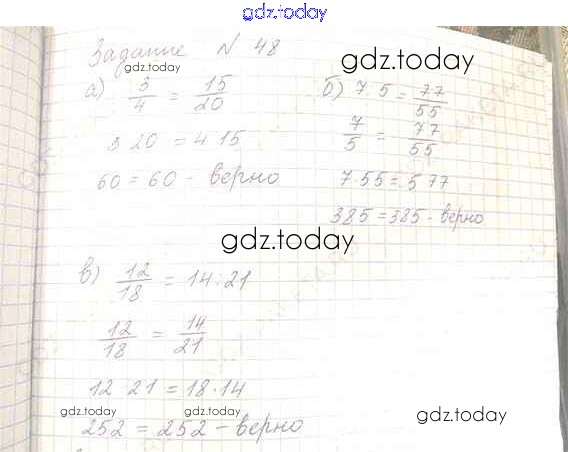 gdz.today
Задание N 48
gdz.today
gdz.today
а) 3/4 = 15/20
б) 7 5 = 77/55
3 20 = 4 15
7/5 = 77/55
60 = 60 - верно
7 55 = 5 77
385 = 385 - верно
gdz.today
в) 12/18 = 14:21
12/18 = 14/21
12 21 = 18·14
gdz.today gdz.today gdz.today
252 = 252 - верно